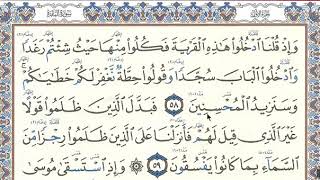 وَإِذْ قُلْنَا ٱدْخُلُوا۟ هَٰذِهِ ٱلْقَرْيَةَ فَكُلُوا۟ مِنْهَا حَيْثُ شِئْتُمْ رَغَدًا
وَٱدْخُلُوا۟ ٱلْبَابَ سُجَّدًا وَقُولُوا۟ حِطَّةٌ نَّغْفِرْ لَكُمْ خَطَٰيَٰكُمْ
وَسَنَزِيدُ ٱلْمُحْسِنِينَ ٥٨ فَبَدَّلَ ٱلَّذِينَ ظَلَمُوا۟ قَوْلًا
غَيْرَ ٱلَّذِى قِيلَ لَهُمْ فَأَنزَلْنَا عَلَى ٱلَّذِينَ ظَلَمُوا۟ رِجْزًا مِّنَ
ٱلسَّمَآءِ بِمَا كَانُوا۟ يَفْسُقُونَ ٥٩ وَإِذِ ٱسْتَسْقَىٰ مُوسَىٰ